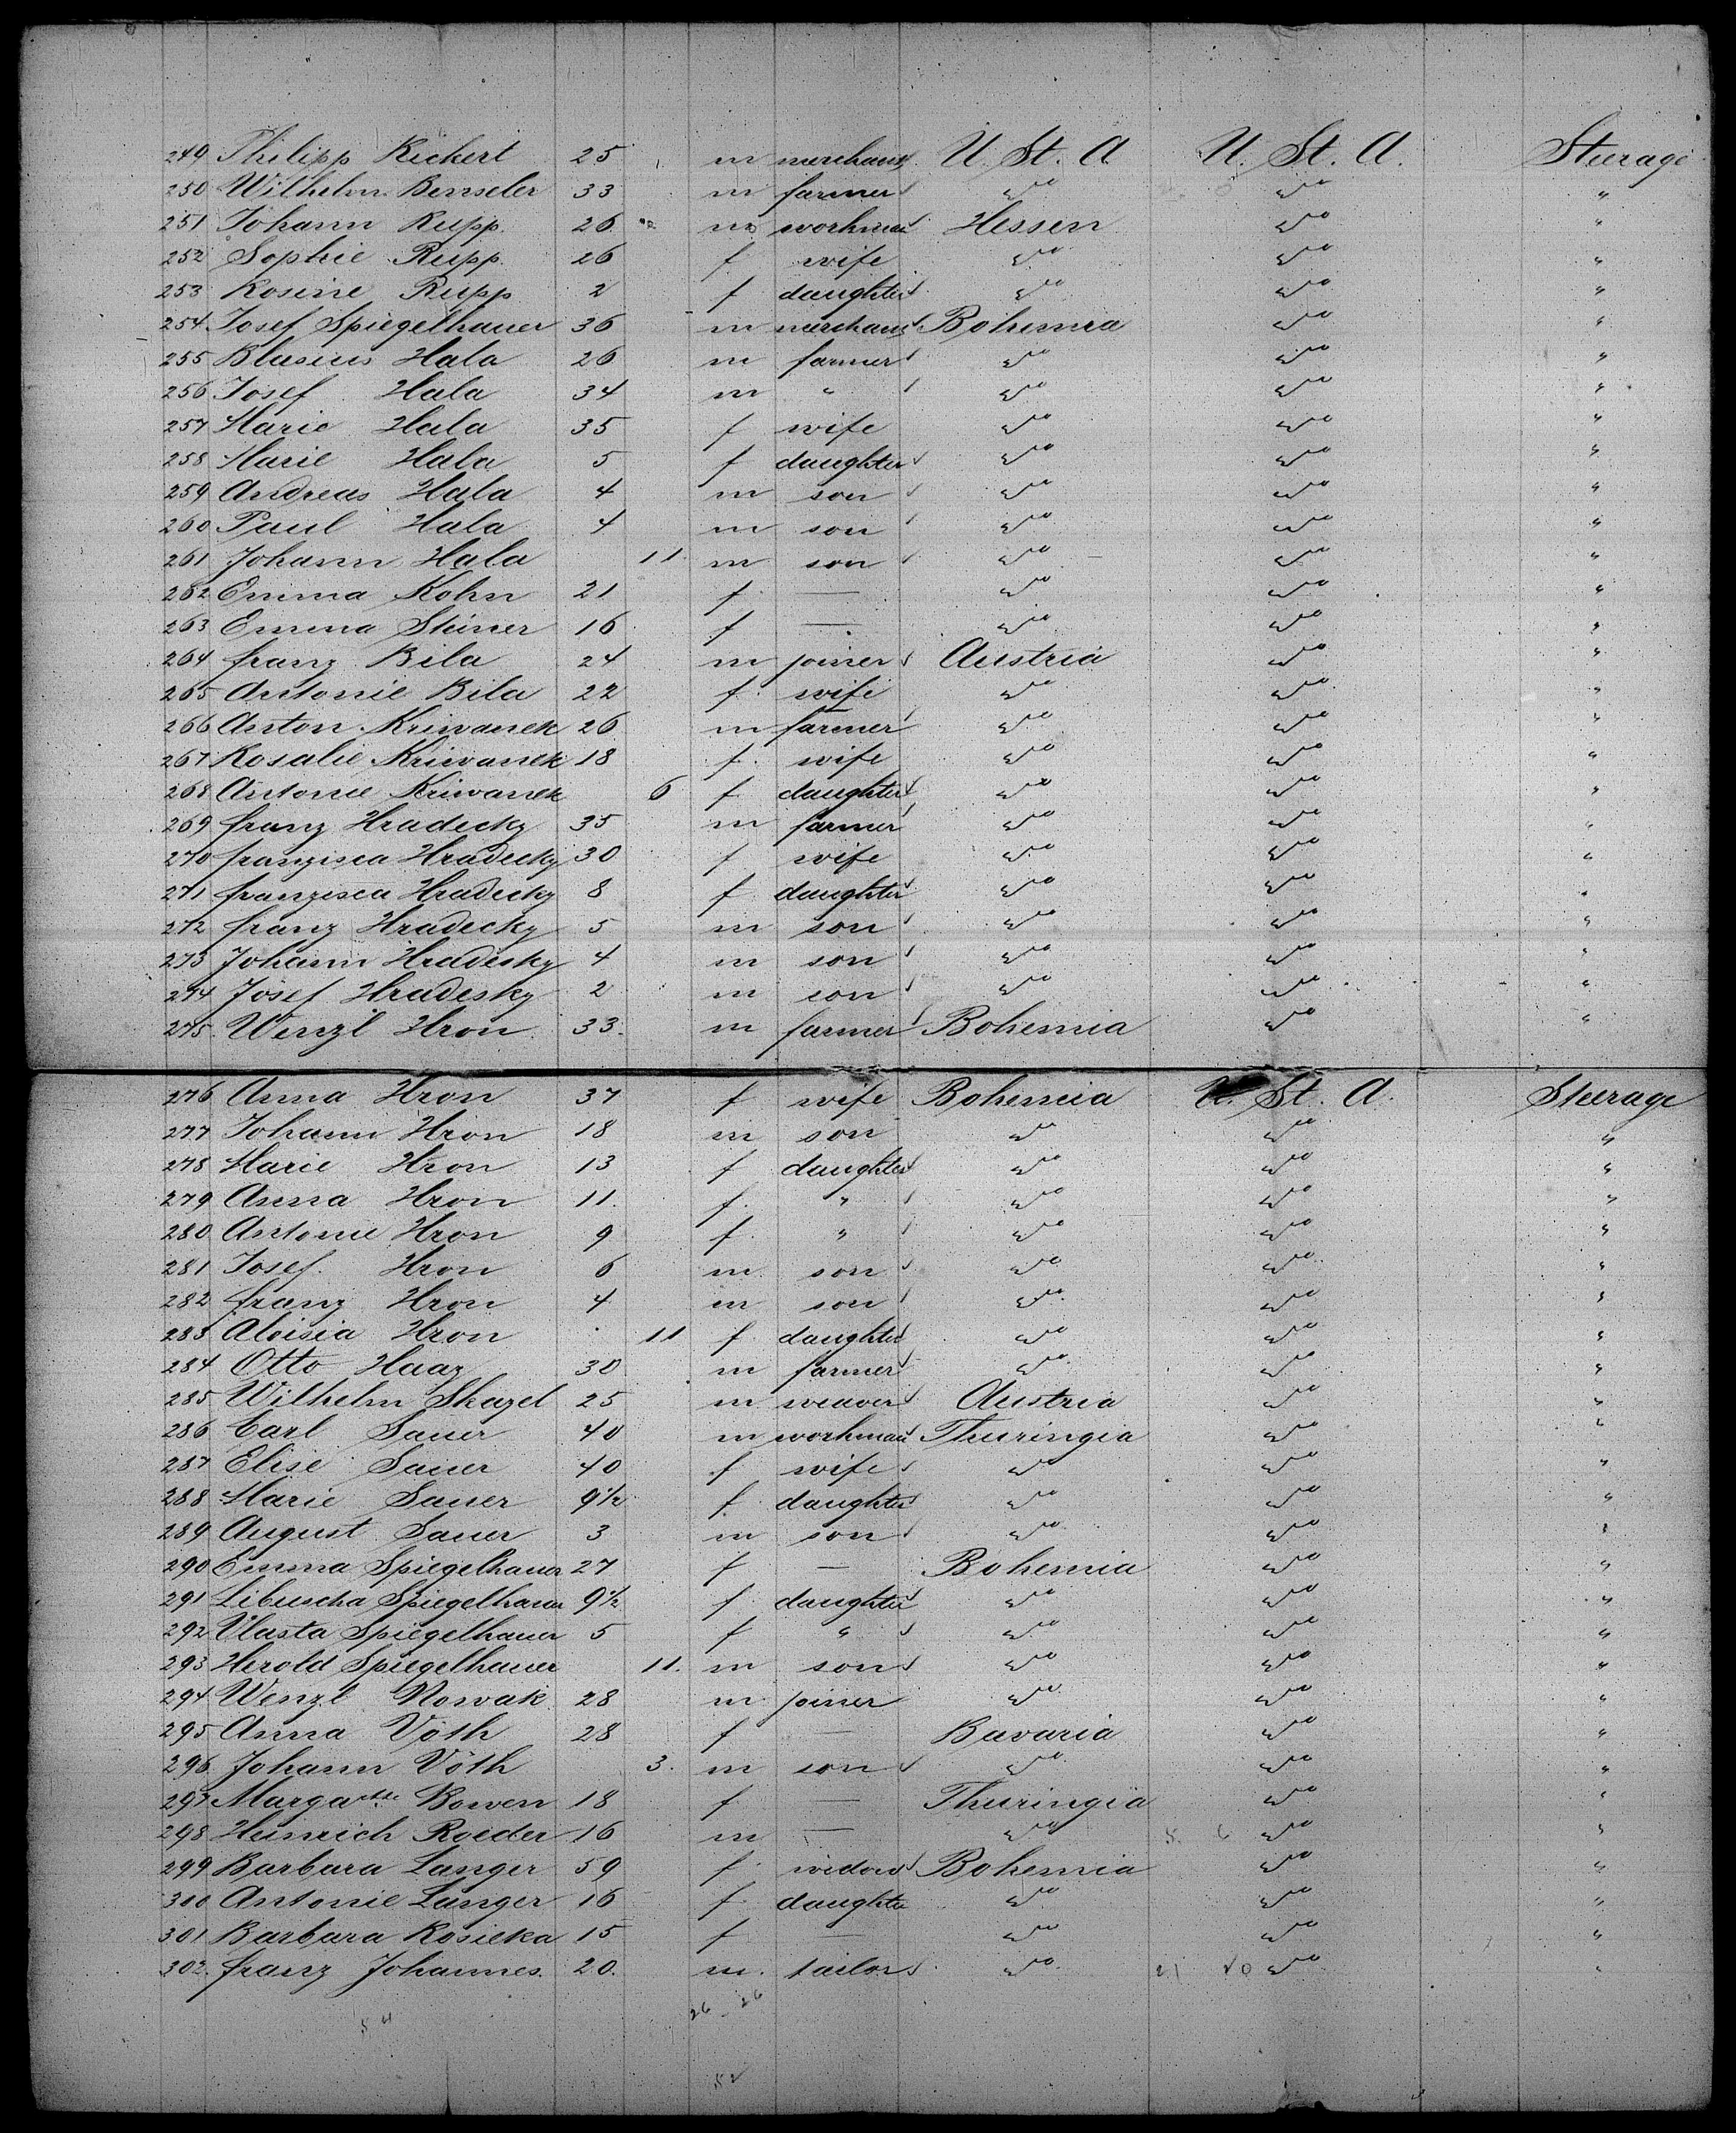 249 Philipp Rickert 25 m merchant U. St. A U. St. A. Steerage
250 Wilhelm Benseler 33 m farmer " " "
251 Johann Rupp 26 m workman Hessen " "
252 Sophie Rupp 26 f wife " " "
253 Rosine Rupp 2 f daughter " " "
254 Josef Spiegelhauer 36 m merchant Bohemia " "
255 Blasius Hala 26 m farmer " " "
256 Josef Hala 34 m " " " "
257 Marie Hala 35 f wife " " "
258 Marie Hala 5 f daughter " " "
259 Andreas Hala 4 m son " " "
260 Paul Hala 4 m son " " "
261 Johann Hala 11 m son " " "
262 Emma Kohn 21 f — " " "
263 Emma Steiner 16 f — " " "
264 franz Bila 24 m joiner Austria " "
265 Antonie Bila 22 f wife " " "
266 Anton Kriwanek 26 m farmer " " "
267 Rosalie Kriwanek 18 f wife " " "
268 Antonie Kriwanek 6 f daughter " " "
269 franz Hradecky 35 m farmer " " "
270 franzisca Hradecky 30 f wife " " "
271 franzisca Hradecky 8 f daughter " " "
272 franz Hradecky 5 m son " " "
273 Johann Hradesky 4 m son " " "
274 Josef Hradesky 2 m son " " "
275 Wenzl Hron 33. m farmer Bohemia " "
276 Anna Hron 37 f wife Bohemia U. St. A. Steerage
277 Johann Hron 18 m son " " "
278 Marie Hron 13 f daughter " " "
279 Anna Hron 11. f " " " "
280 Antonie Hron 9 f " " " "
281 Josef Hron 6 m son " " "
282 franz Hron 4 m son " " "
283 Aloisia Hron 11 f daughter " " "
284 Otto Haaz 30 m farmer " " "
285 Wilhelm Skazel 25 m weaver Austria " "
286 Carl Sauer 40 m workman Thuringia " "
287 Elise Sauer 40 f wife " " "
288 Marie Sauer 9½ f daughter " " "
289 August Sauer 3 m son " " "
290 Emma Spiegelhauer 27 f — Bohemia " "
291 Libuscha Spiegelhauer 9½ f daughter " " "
292 Vlasta Spiegelhauer 5 f " " " "
293 Herold Spiegelhauer 11. m son " " "
294 Wenzl Nowak 28 m joiner " " "
295 Anna Vöth 28 f — Bavaria " "
296 Johann Vöth 3. m son " " "
297 Margaethe Bowen 18 f — Thuringia " "
298 Heinrich Roeder 16 m — " " "
299 Barbara Langer 59 f widow Bohemia " "
300 Antonie Langer 16 f daughter " " "
301 Barbara Kosicka 15 f — " " "
302. franz Johannes. 20. m. tailor " " "
26 - 26
54
52